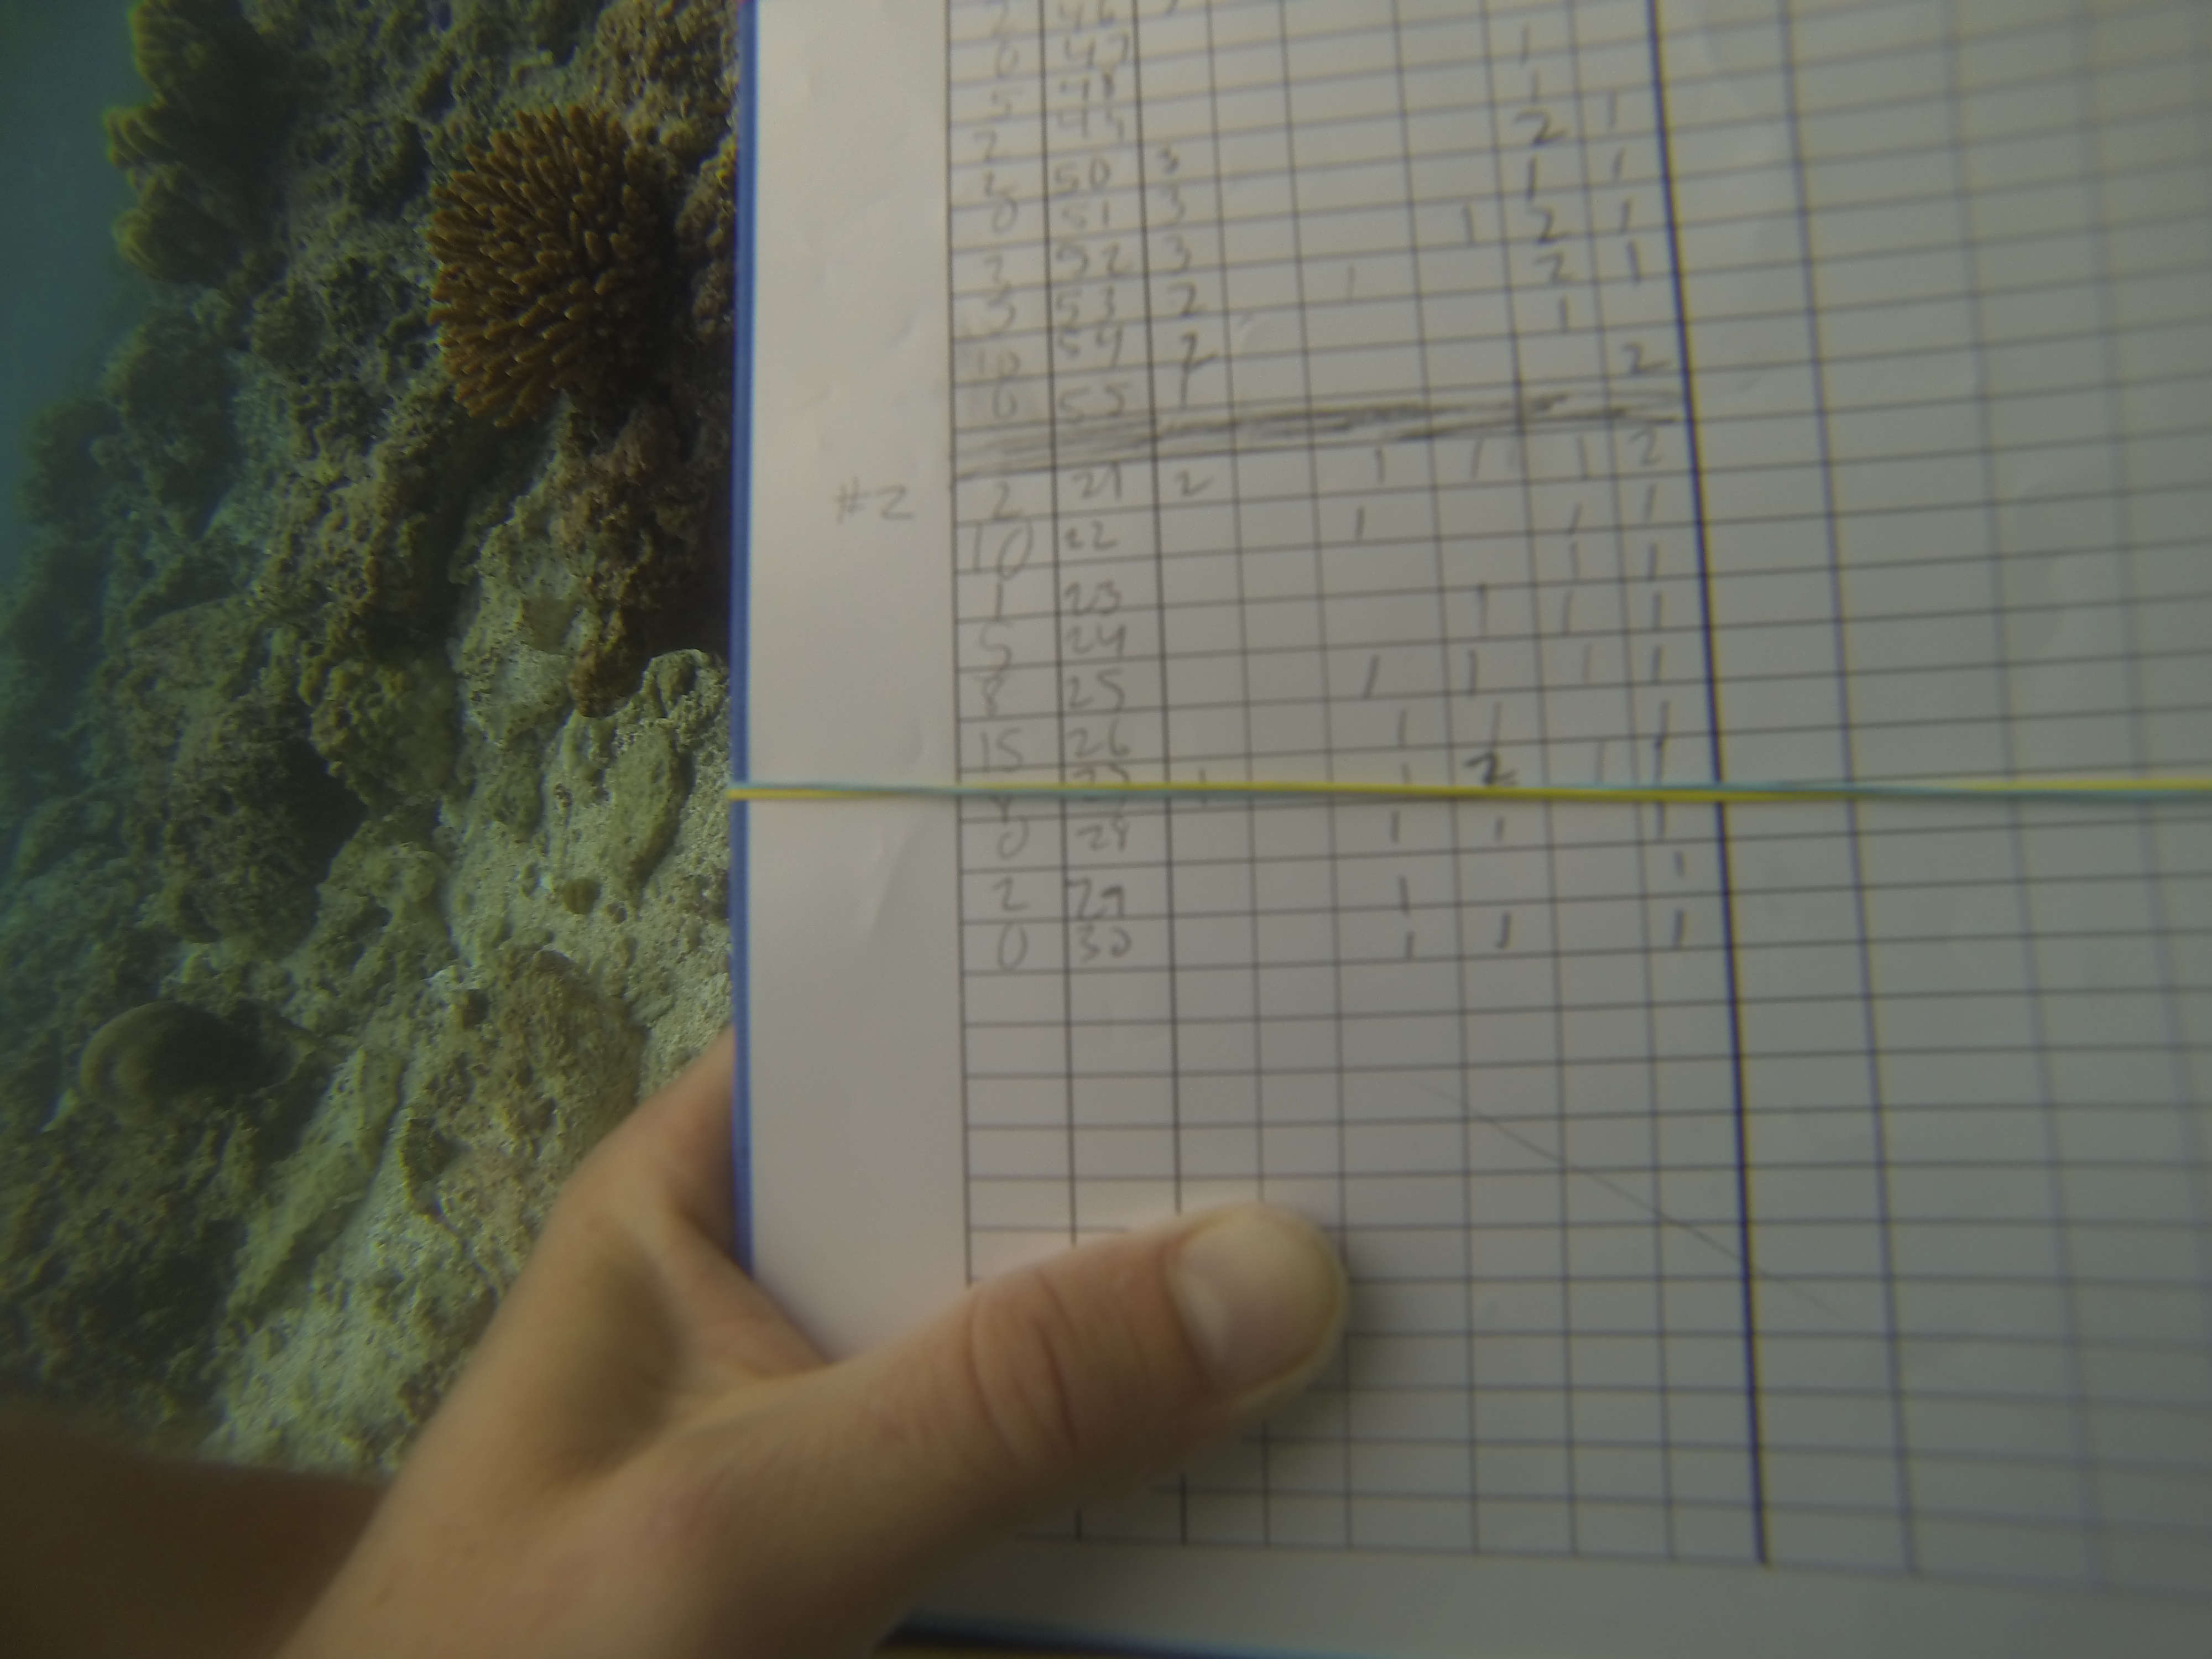 2 46
0 47 1
5 48 1
2 49 2 1
50 3 1 1
0 51 3 1 2 1
2 52 3 1 2 1
3 53 2 1
10 54 2 2
0 55 1
#2 2 21 2 1 1 1 2
10 22 1 1 1
1 23 1 1
5 24 1 1 1
8 25 1 1 1 1
15 26 1 1 1
27 1 1 2 1 1
0 28 1 1 1
2 29 1 1
0 30 1 1 1